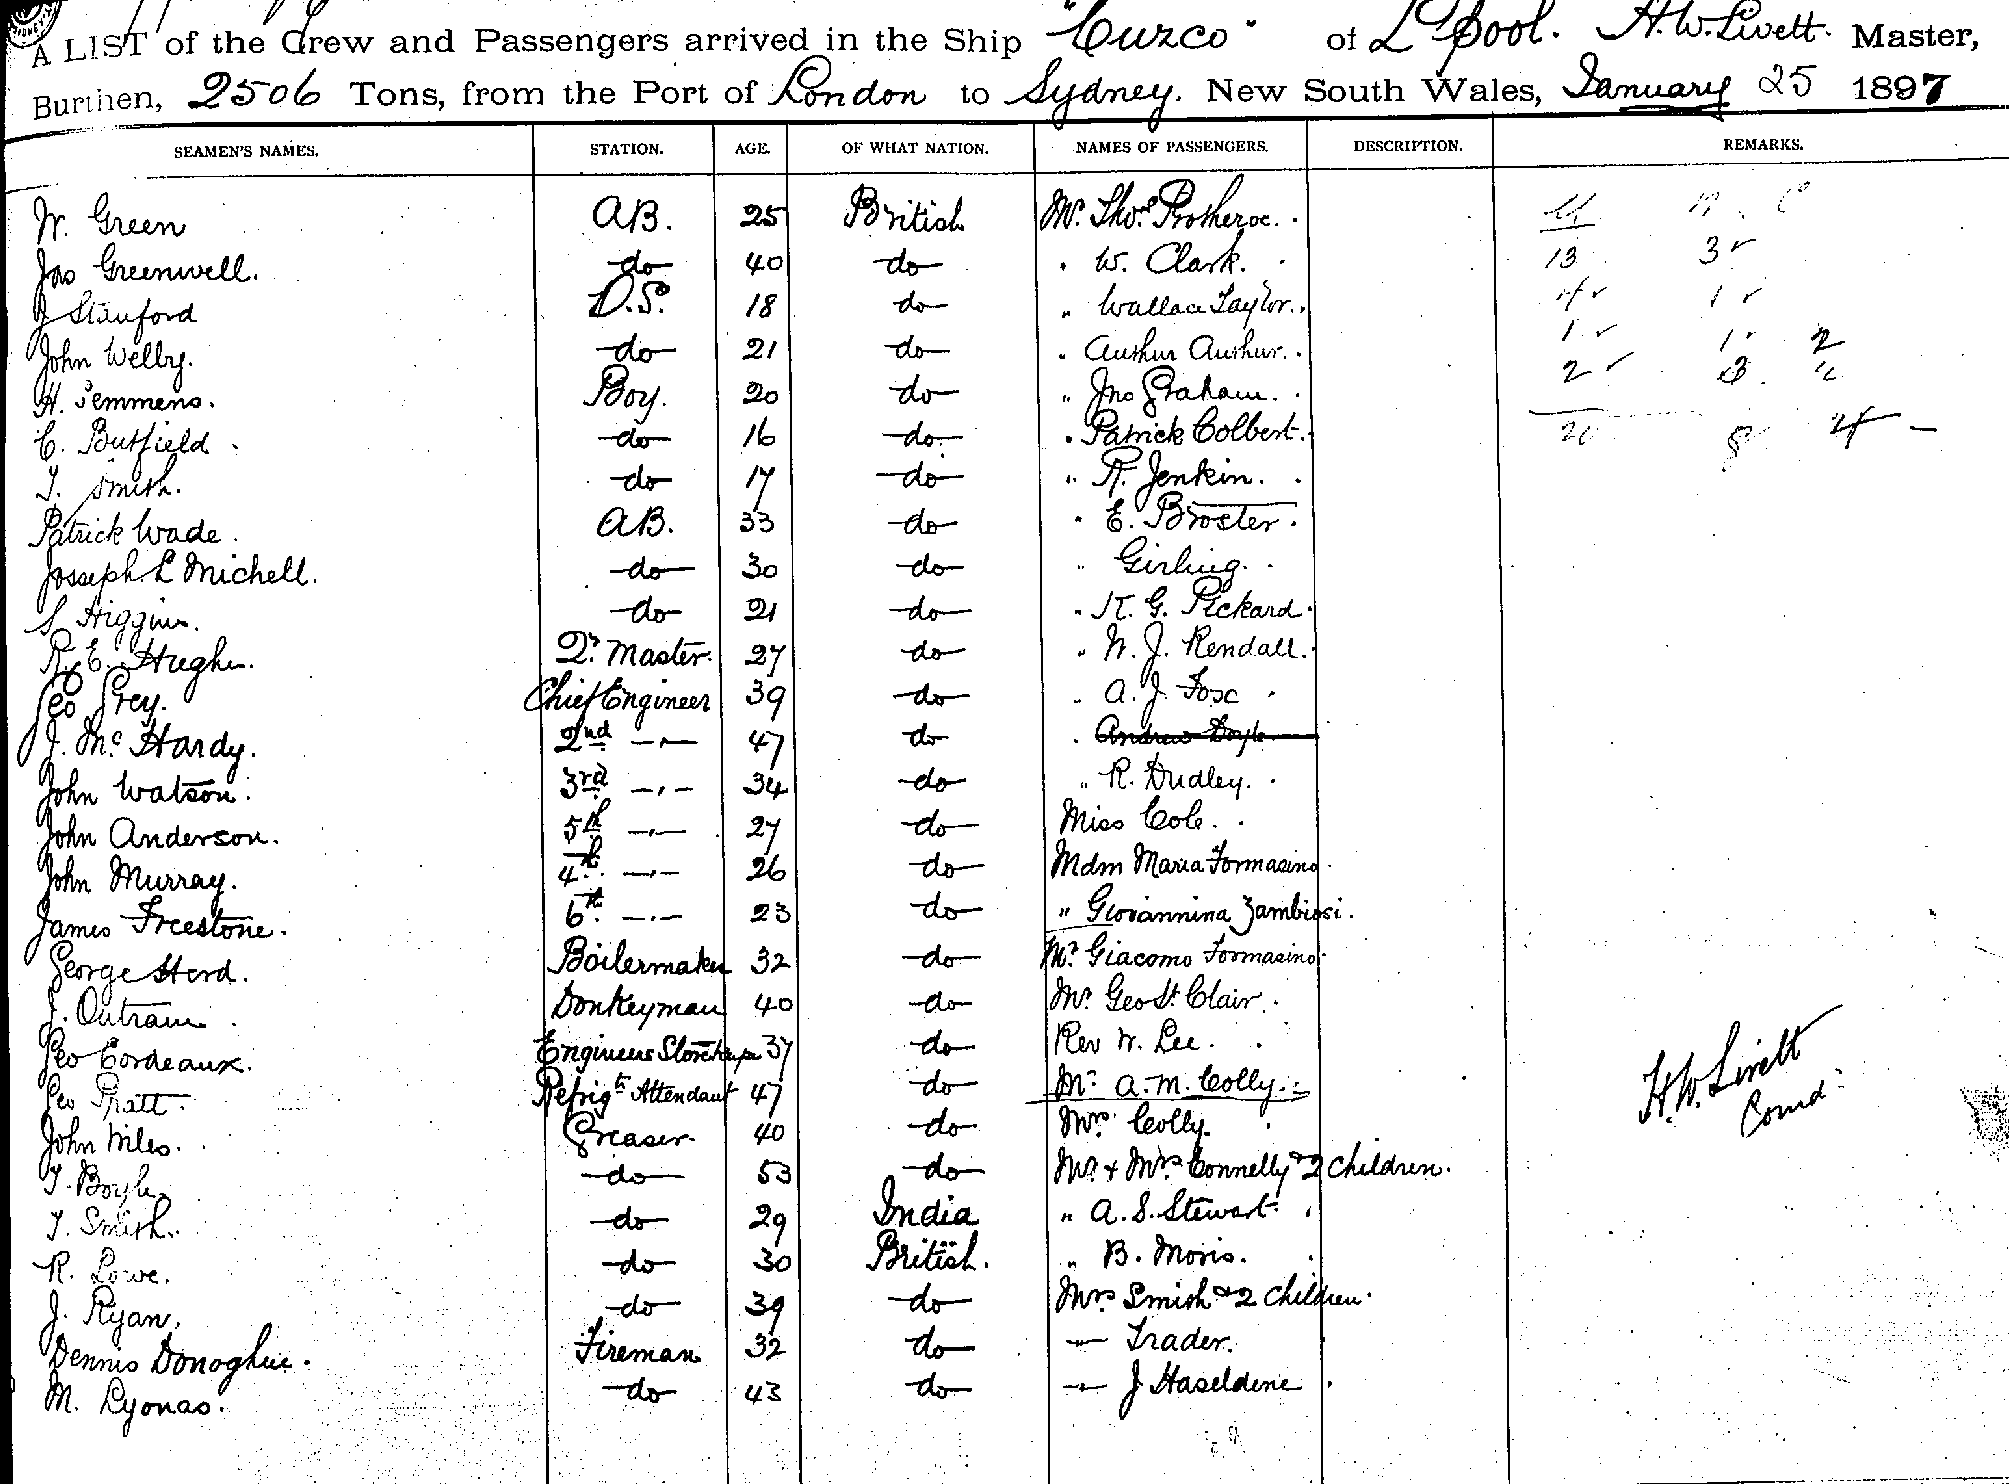 A LIST of the Crew and Passengers arrived in the Ship "Cuzco" of L'pool. H.W. Livett. Master,
Burthen, 2506 Tons, from the Port of London to Sydney. New South Wales, January 25 1897
SEAMEN'S NAMES. STATION. AGE. OF WHAT NATION. NAMES OF PASSENGERS. DESCRIPTION. REMARKS.
W. Green AB. 25 British Mr. Thos. Protheroe.
Jas Greenwell. do 40 do " W. Clark. 13 3
J Stanford O.S. 18 do " Wallace Taylor. 4 1
John Welby. do 21 do " Authur Authur. 1 1 2
H. Jemmens. Boy. 20 do " Jno Graham. 2 3 "
C. Butfield do 16 do " Patrick Colbert. 20 8 4
T. Smith. do 17 do " R. Jenkin.
Patrick Wade. AB. 33 do " E. Broster.
Josseph. L Michell. do 30 do " Girling.
S Higgins. do 21 do " K. G. Pickard.
R. E. Hughes. Qr. Master. 27 do " W. J. Rendall.
Geo Grey. Chief Engineer 39 do " A. J. Fox
J. Mc Hardy. 2nd -"- 47 do " Andrew Doyle
John Watson. 3rd -"- 34 do " R. Dudley.
John Anderson. 5th -"- 27 do Miss Cole.
John Murray. 4th -"- 26 do Mdm Maria Formasino
James Freestone. 6th -"- 23 do " Giovannina Zambiasi.
George Herd. Boilermaker 32 do Mr. Giacomo Formasino
J. Outram. Donkeyman 40 do Mr Geo St. Clair.
Geo Cordeaux. Engineers Storekeeper 37 do Rev W. Lee.
Geo Pratt. Refrigtr Attendant 47 do Mr A. M. Colly.
John Miles. Greaser. 40 do Mrs Colly.
T. Boyle do 53 do Mr. + Mrs. Connelly + 2 Children.
T. Smith. do 29 India " A. S. Stewart.
R. Lowe. do 30 British. " B. Moris.
J. Ryan. do 39 do Mrs Smith + 2 Children.
Dennis Donoghue. Fireman 32 do -"- Trader.
M. Lyonas. do 43 do -"- J Haseldene
H.W. Livett
Comd.